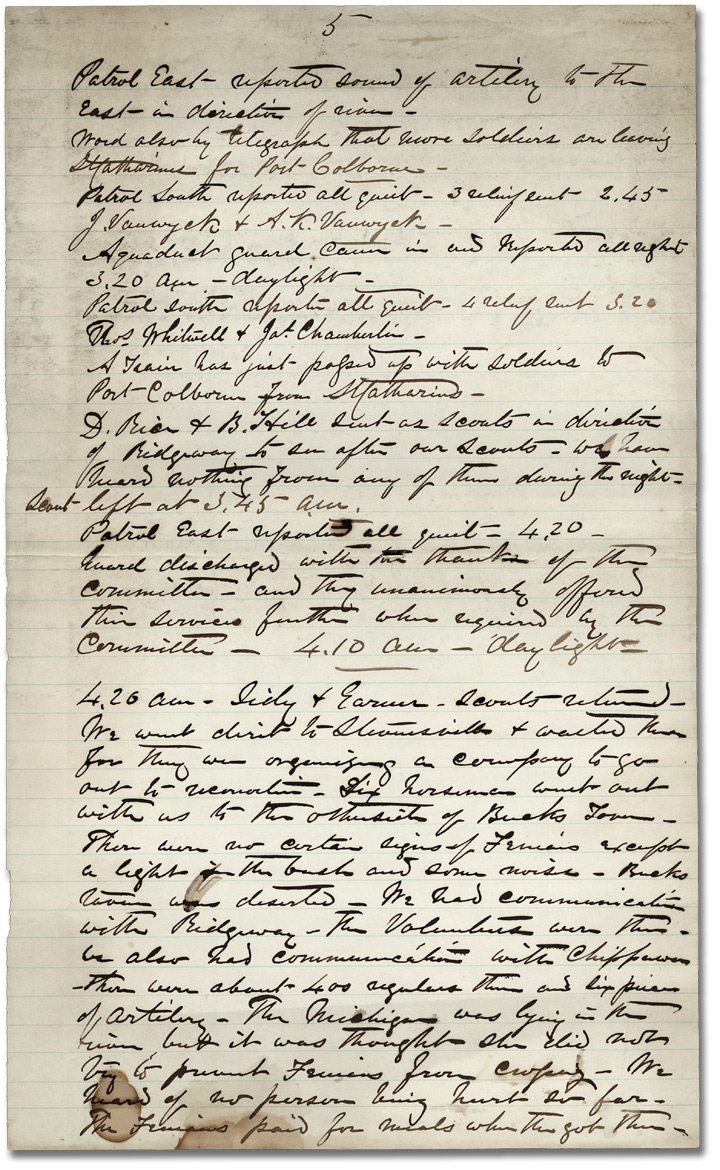 5
Patrol East - reported sound of artilery to the
East - in direction of river -
Word also by telegraph that more soldiers are leaving
St Catharines for Port Colborne -
Patrol South reported all quiet - 3 relief sent 2.45
J. Vanwyck & A. K. Vanwyck -
Aquaduct guard came in and reported all right
3.20 am - daylight -
Patrol south reports all quiet - 4 relief sent 3.20
Thos Whitwell & Jas. Chamberlin -
A Train has just passed up with soldiers to
Port Colborne from St Catharines -
D. Rice & B. Hill sent as scouts in direction
of Ridgeway to see after our scouts - we have
heard nothing from any of them during the night -
scout left at 3.45 am.
Patrol East reported all quiet - 4.20 -
Guard discharged with the thanks of the
Committee - and they unanimously offered
their services further when required by the
Committee - 4.10 am - daylight -
4.20 am - Sidy & Garner - scouts returned -
We went direct to Stevensville & waited there
for they were organizing a company to go
out to reconoitre - Six horsemen went out
with us to the othersides of Bucks Tavern -
There were no certain signs of Fenians except
a light in the bush and some noise - Bucks
tavern was deserted - We had communication
with Ridgeway - the Volunteers were there -
we also had communication with Chippawa
- there were about 400 regulars there and six pieces
of Artilery - The Michigan was lying in the
river but it was thought she did not
try to prevent Fenians from crossing - We
heard of no person being hurt so far -
The Fenians paid for meals when the got them -